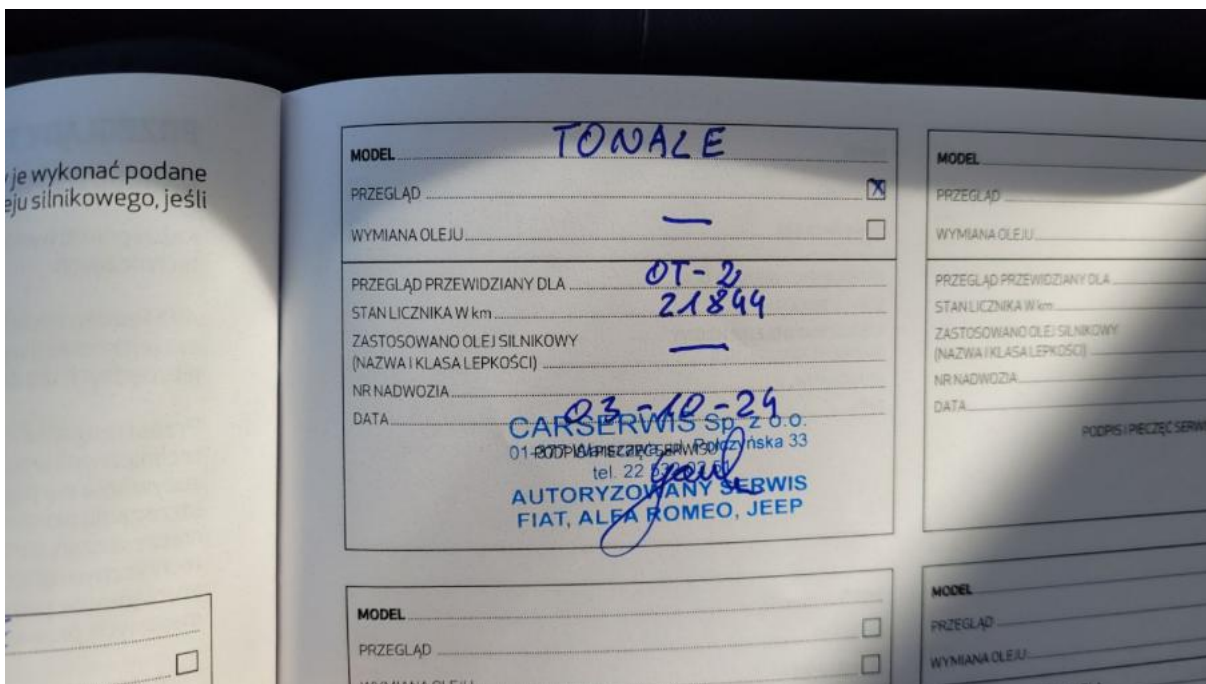 je wykonać podane
ju silnikowego, jeśli
MODEL TONALE
PRZEGLĄD X
WYMIANA OLEJU —
PRZEGLĄD PRZEWIDZIANY DLA OT-2
STAN LICZNIKA W km 21844
ZASTOSOWANO OLEJ SILNIKOWY —
(NAZWA I KLASA LEPKOŚCI)
NR NADWOZIA
DATA 03-10-24
CARSERWIS Sp. z o.o.
01-377 Warszawa, ul. Połczyńska 33
PODPIS I PIECZĘĆ SERWISU
tel. 22
AUTORYZOWANY SERWIS
FIAT, ALFA ROMEO, JEEP
MODEL
PRZEGLĄD
WYMIANA OLEJU
PRZEGLĄD PRZEWIDZIANY DLA
STAN LICZNIKA W km
ZASTOSOWANO OLEJ SILNIKOWY
(NAZWA I KLASA LEPKOŚCI)
NR NADWOZIA
DATA
PODPIS I PIECZĘĆ SERWI
MODEL
PRZEGLĄD
WYMIANA OLEJU
MODEL
PRZEGLĄD
WYMIANA OLEJU